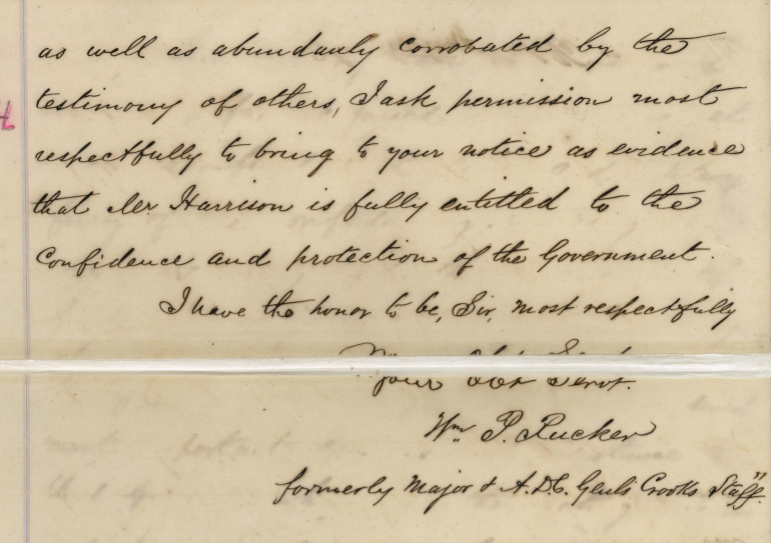 as well as abundanly corrobated by the
testimony of others, I ask permission most
respectfully to bring to your notice as evidence
that Mr. Harrison is fully entitled to the
Confidence and protection of the Government.
I have the honor to be, Sir, most respectfully
Your Obt Servt.
Wm P. Rucker
formerly Major & A.D.C. Genls Crooks Staff.